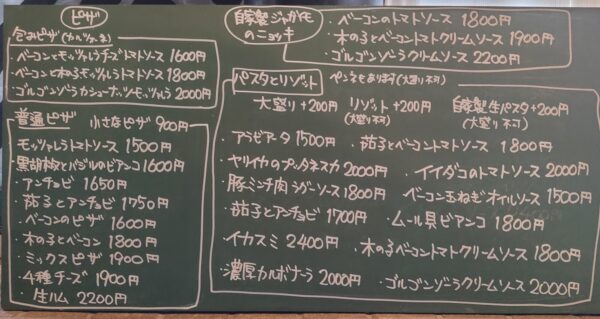 ピザ
包みピザ(カルツォーネ)
・ベーコンとモッツァレラチーズトマトソース 1600円
・ベーコンと木の子モッツァレラトマトソース 1800円
・ゴルゴンゾーラカシューナッツモッツァレラ 2000円
普通ピザ 小さなピザ 900円
・モッツァレラトマトソース 1500円
・黒胡椒とバジルのビアンコ 1600円
・アンチョビ 1650円
・茄子とアンチョビ 1750円
・ベーコンのピザ 1600円
・木の子とベーコン 1800円
・ミックスピザ 1900円
・4種チーズ 1900円
・生ハム 2200円
自家製ジャガイモのニョッキ
・ベーコンのトマトソース 1800円
・木の子とベーコントマトクリームソース 1900円
・ゴルゴンゾーラクリームソース 2200円
パスタとリゾット ペンネもあります(大盛り不可)
大盛り+200円 リゾット+200円 自家製生パスタ+200円
(大盛り不可) (大盛り不可)
・アラビアータ 1500円
・ヤリイカのプッタネスカ 2000円
・豚ミンチ肉ラグーソース 1800円
・茄子とアンチョビ 1700円
・イカスミ 2400円
・濃厚カルボナーラ 2000円
・茄子とベーコントマトソース 1800円
・イイダコのトマトソース 2000円
・ベーコン玉ねぎオイルソース 1500円
・ムール貝ビアンコ 1800円
・木の子ベーコントマトクリームソース 1800円
・ゴルゴンゾーラクリームソース 2000円